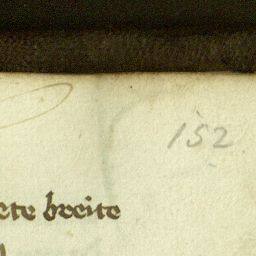 152
ete breite